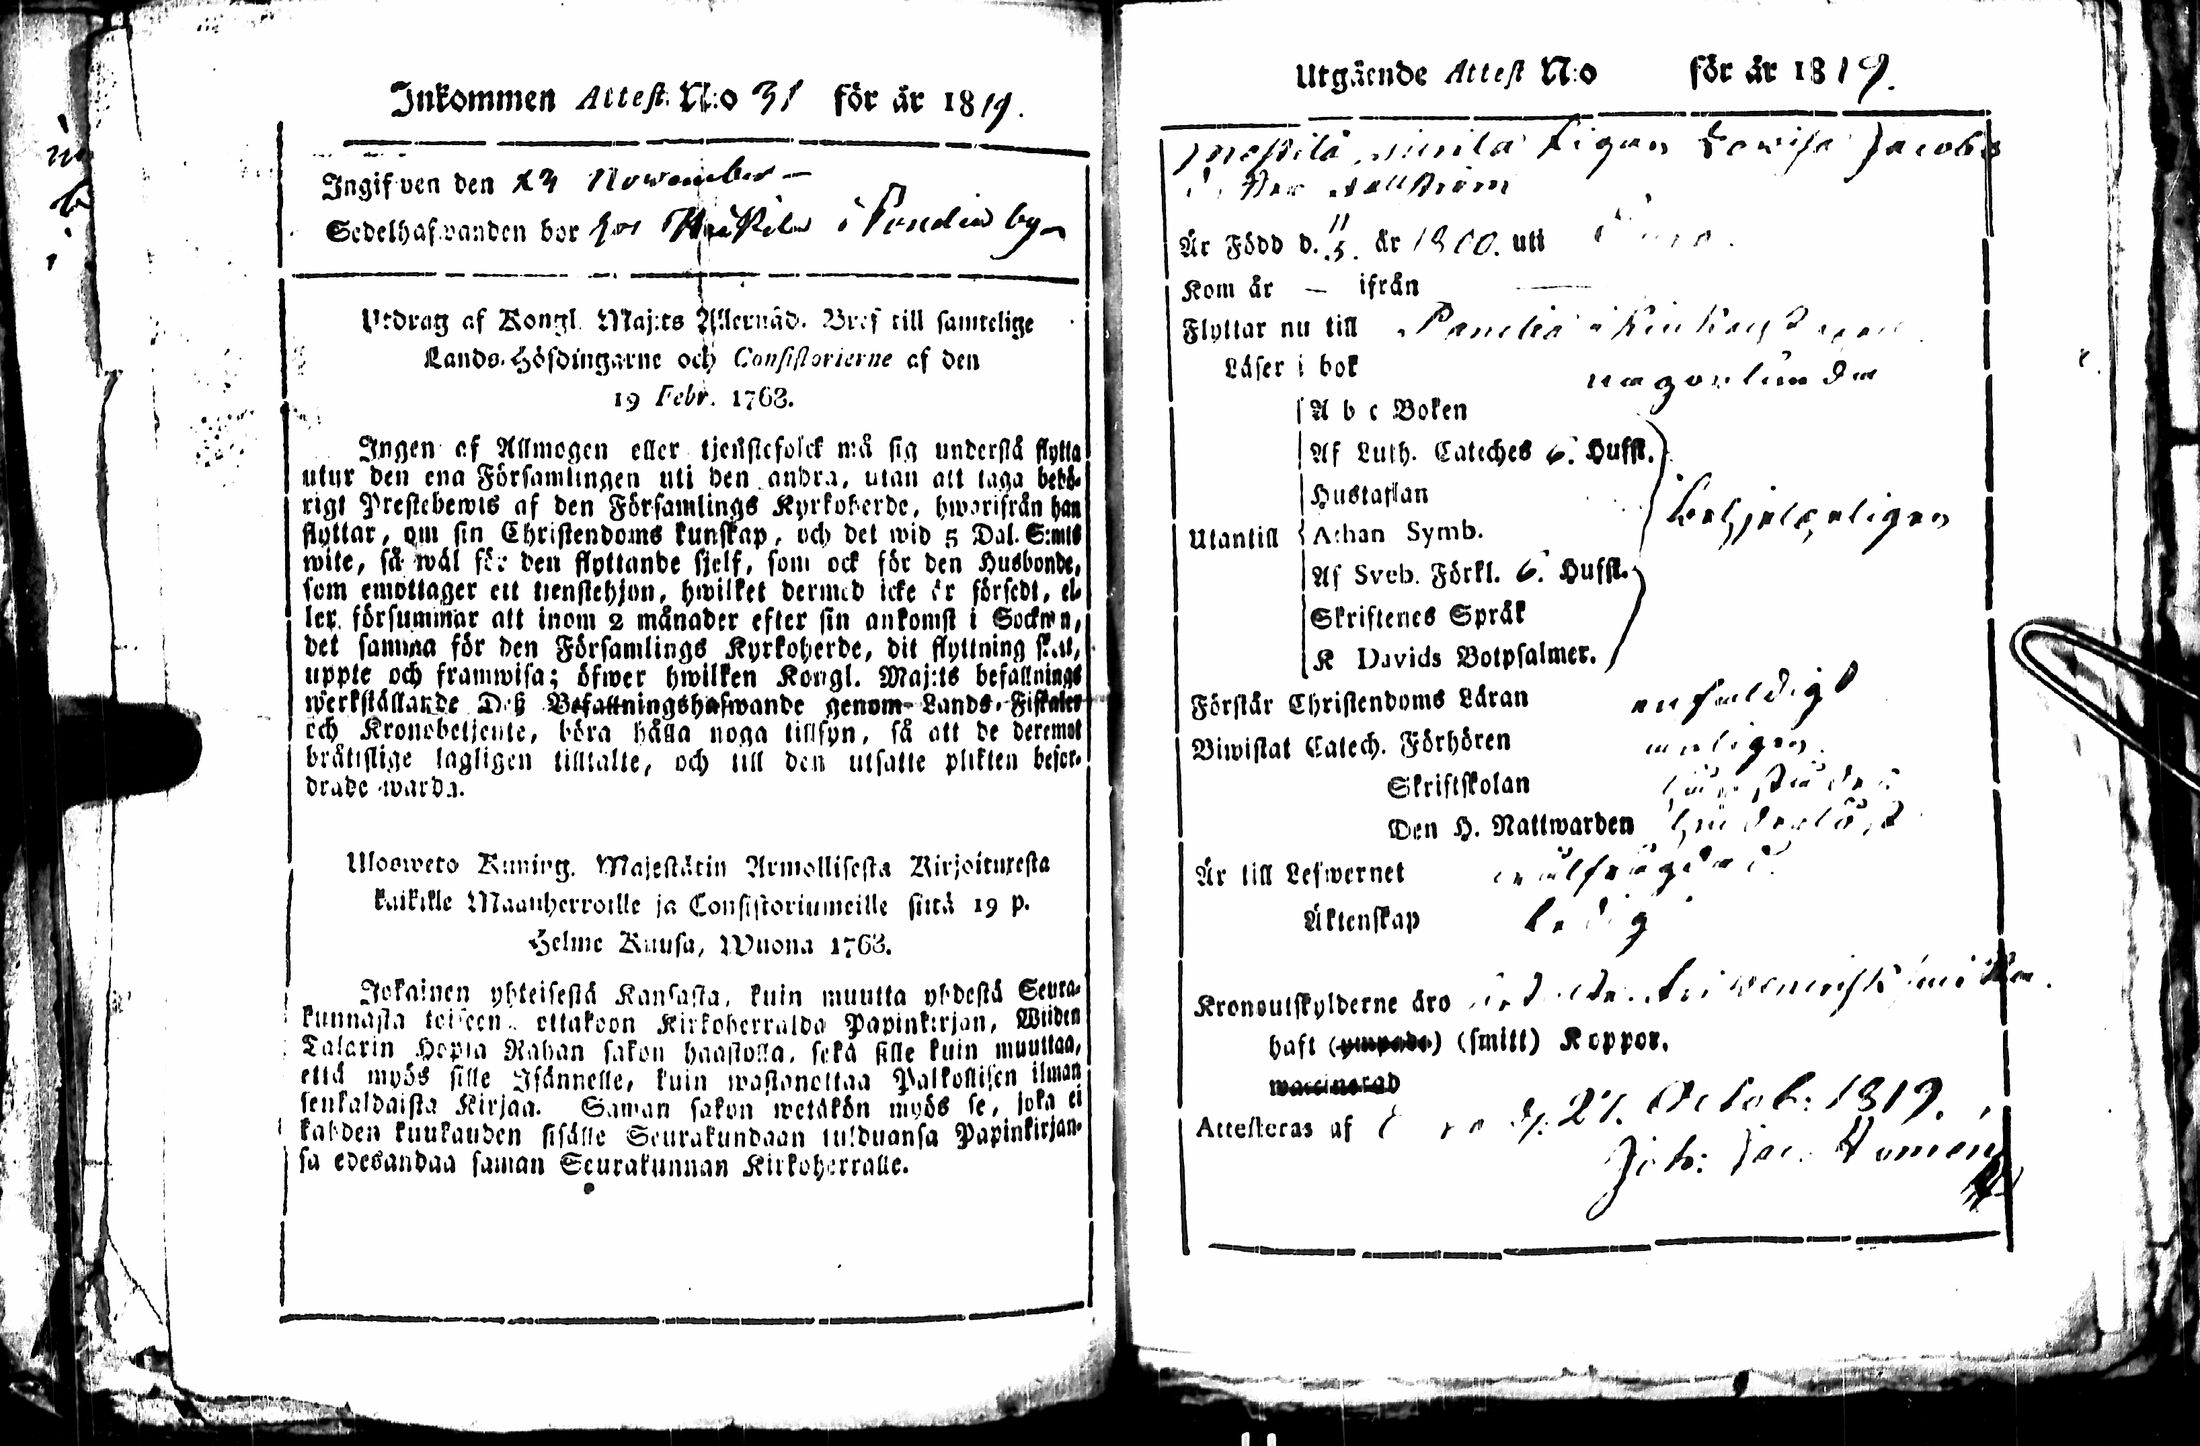 Inkommen Attest. N:o 31 för år 1819.
Ingifven den 23 November
Sedelhafvanden bor hos i by
Utdrag af Kongl. Maj:ts Allernåd. Bref till samtelige
Lands-Höfdingarne och Consistorierne af den
19 Febr. 1763.
Ingen af Allmogen eller tjenstefolck må sig understå flytta
utur den ena Församlingen uti den andra, utan att taga behö-
rigt Prestebewis af den Församlings Kyrkoherde, hworifrån han
flyttar, om sin Christendoms kunskap, och det wid 5 Dal. S:mts
wite, så wäl för den flyttande sjelf, som ock för den Husbonde,
som emottager ett tienstehjon, hwilket dermed icke är försedt, el-
ler försummar att inom 2 månader efter sin ankomst i Socknen,
det samma för den Församlings Kyrkoherde, dit flyttning skal,
uppte och framwisa; öfwer hwilken Kongl. Maj:ts befallnings
werkställande Deß Befallningshafwande genom Lands-Fiskaler
och Kronobetjente, böra hålla noga tillsyn, så att de deremot
brättslige lagligen tilltalte, och till den utsatte plikten befor-
drade warda.
Ulosweto Kuning. Majestätin Armollisesta Kirjoituxesta
kaikille Maanherroille ja Consistoriumeille siitä 19 p.
Helme Kuusa, Wuona 1763.
Jokainen yhteisestä Kansasta, kuin muutta yhdestä Seura-
kunnasta toiseen, ottakoon Kirkoherralda Papinkirjan, Wiiden
Talarin Hopia Rahan sakon haastolla, sekä sille kuin muuttaa,
että myös sille Isännelle, kuin wastanottaa Palkollisen ilman
senkaldaista Kirjaa. Saman sakon wetäkön myös se, joka ei
kahden kuukauden sisälle Seurakundaan tulduansa Papinkirjan-
sa edesandaa saman Seurakunnan Kirkoherralle.
Utgående Attest N:o för år 1819.
Pigan Lowisa Jacobs
dotter
Är Född d. 11/5. år 1800. uti
Kom år — ifrån —
Flyttar nu till i
Läser i bok någorlunda
A b c Boken
Af Luth. Cateches 6. Hufst.
Hustaflan
Utantill Athan Symb. behjelpeligen
Af Sveb. Förkl. 6. Hufst.
Skriftenes Språk
K Davids Botpsalmer.
Förstår Christendoms Läran enfaldigt
Biwistat Catech. Förhören
Skriftskolan
Den H. Nattwarden hinderlöst
Är till Lefwernet wälfrägdad
Äktenskap ledig
Kronoutskylderne äro
haft (ympade) (smitt) Koppor.
waccinerad
Attesteras af d. 27. Octob: 1819.
Joh: Jac.